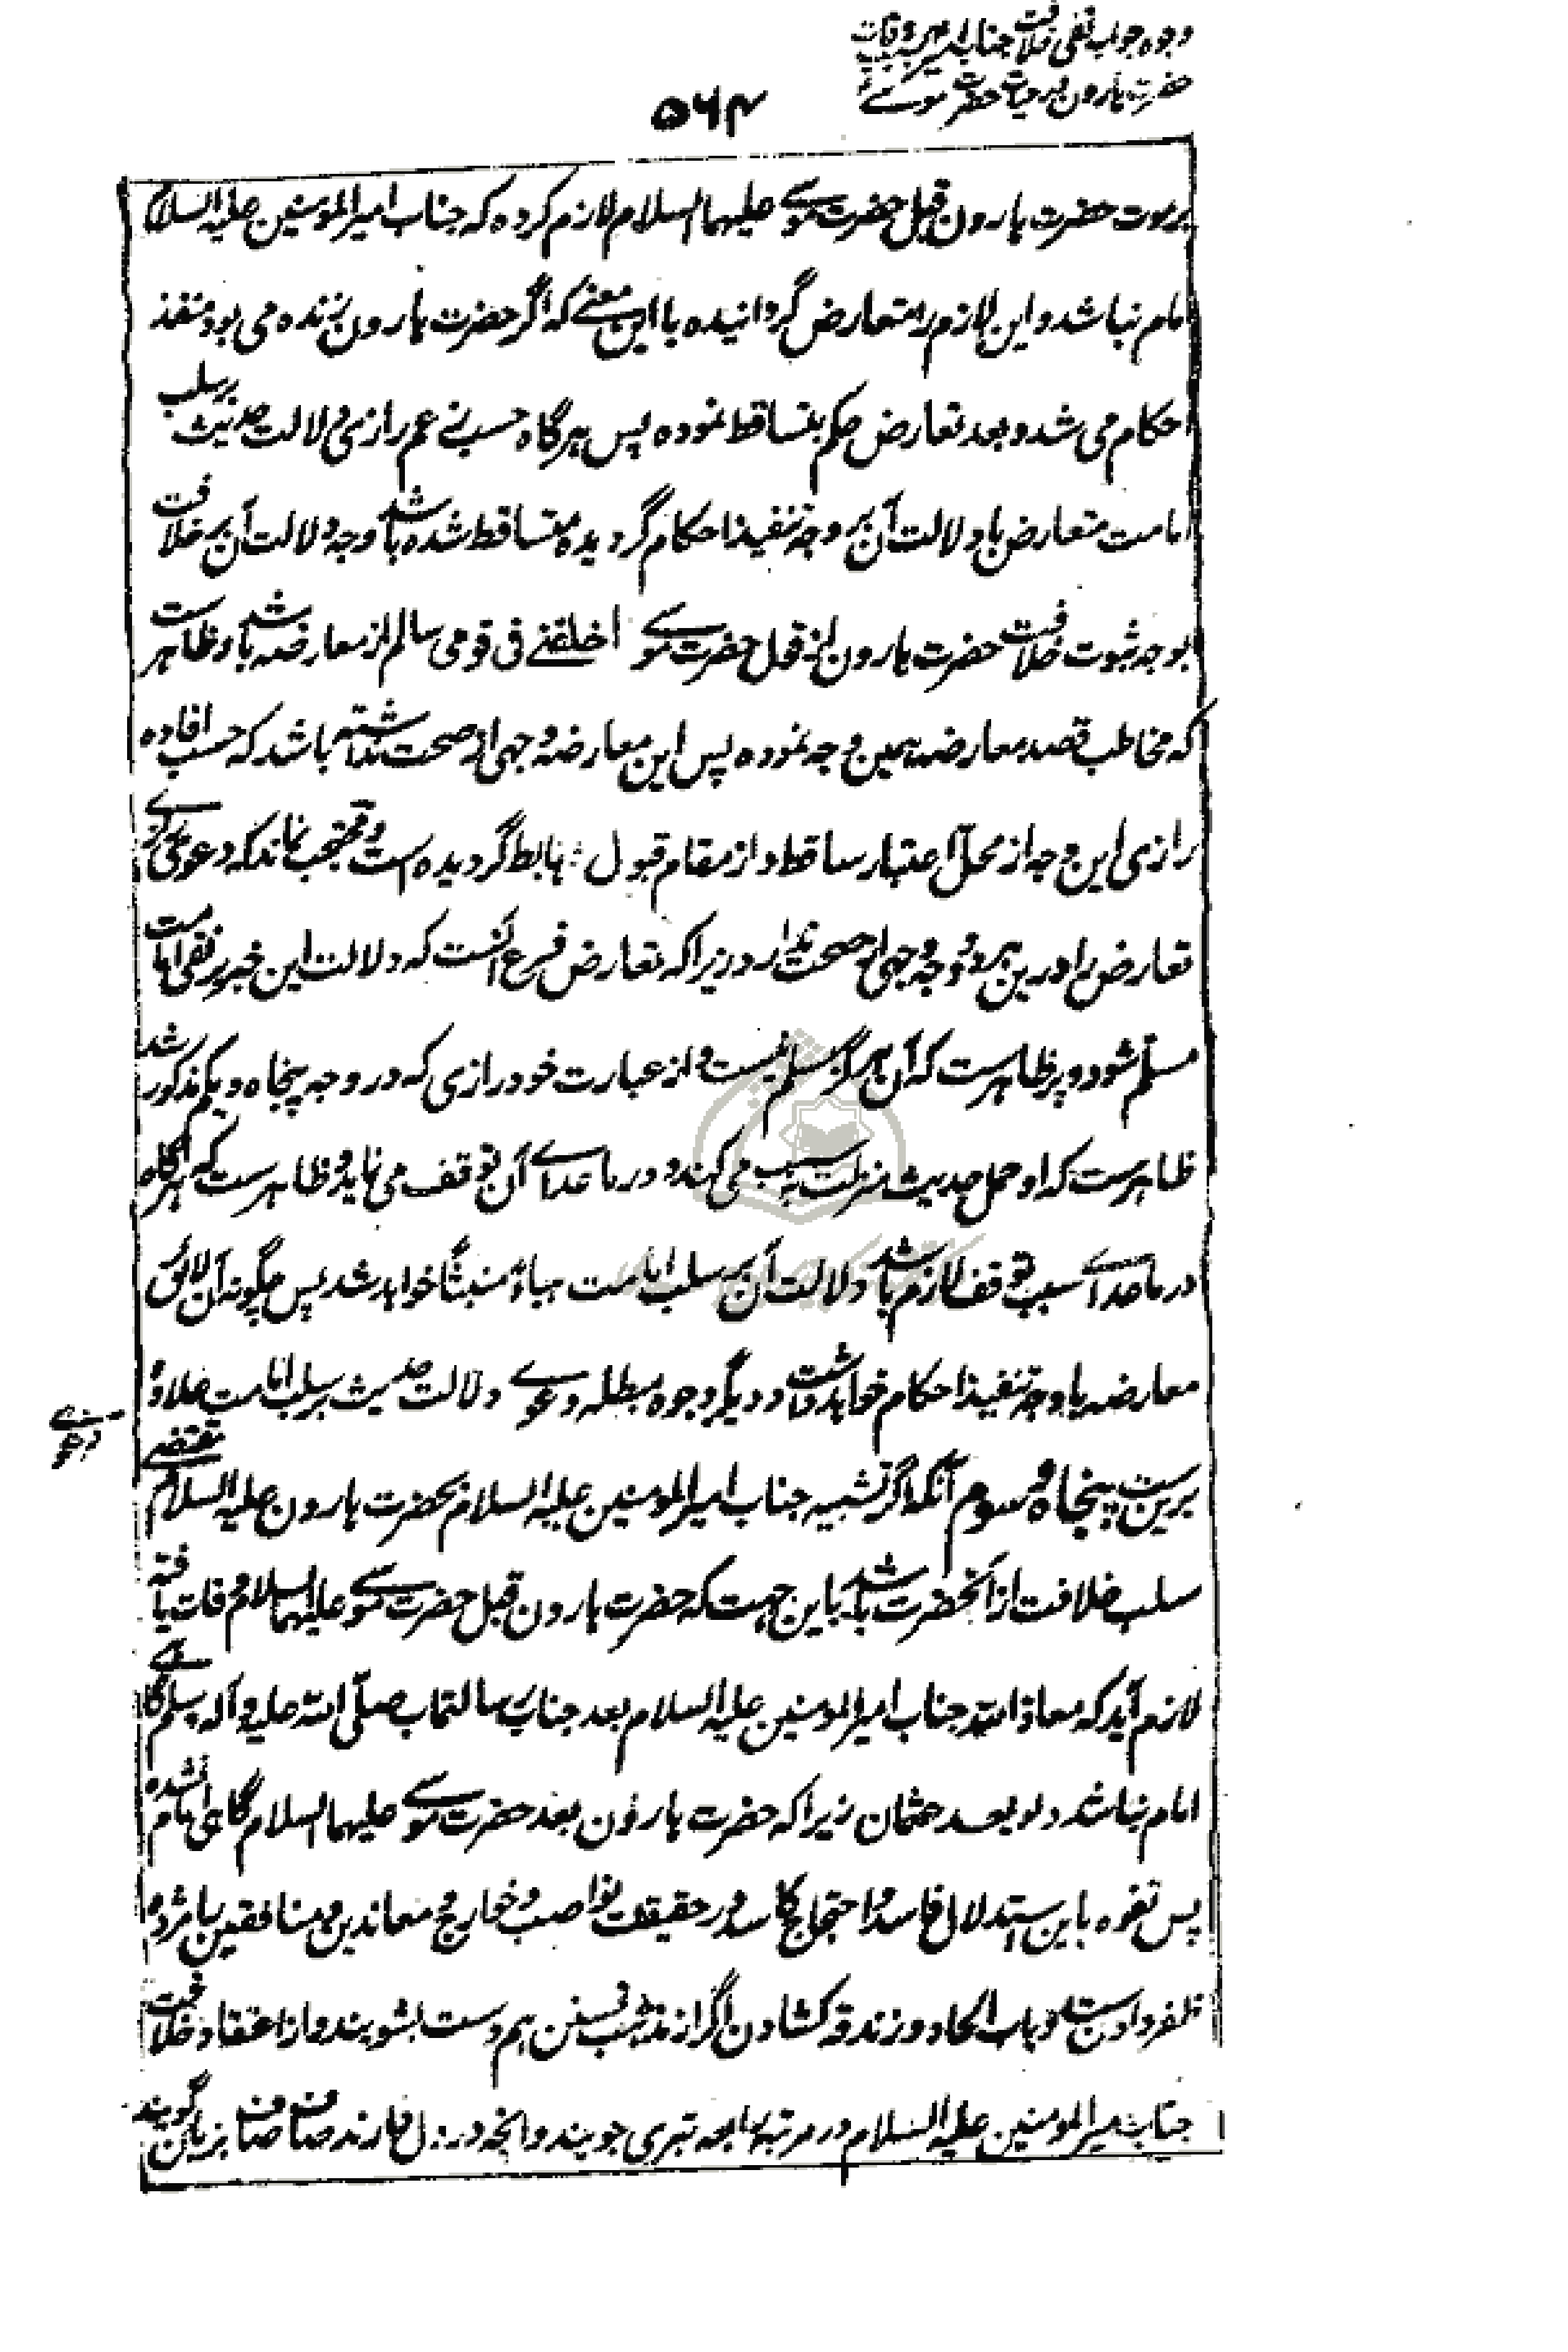 وجوه جواب نفی خلافت جناب امیر بسبب وفات
حضرت هارون در حیات حضرت موسےٰ
۵۶۴
برموت حضرت هارون قبل حضرت موسے علیهما السلام لازم کرده که جناب امیر المؤمنین علیه السلام
امام نباشد و این لازم را متعارض گردانیده با این معنے که اگر حضرت هارون زنده می بود منفذ
احکام می شد و بعد تعارض حکم بتساقط نموده پس هرگاه حسب زعم رازی دلالت حدیث بر سلب
امامت متعارض با دلالت آن بر وجه تنفیذ احکام گردیده متساقط شده باشد وجه دلالت آن بر خلافت
بوجه ثبوت خلافت حضرت هارون از قول حضرت موسے اخلفنے فی قومی سالم از معارضه باشد و ظاهرست
که مخاطب قصد معارضه بهمین وجه نموده پس این معارضه وجهی از صحت نداشته باشد که حسب افاده
رازی این وجه از محل اعتبار ساقط و از مقام قبول هابط گردیده است و محتجب نماند که دعوی
تعارض را درین هر دو وجه وجهی از صحت ندارد زیرا که تعارض فرع آنست که دلالت این خبر بر نفی امامت
مسلم شود و پر ظاهرست که آن هرگز مسلم نیست و از عبارت خود رازی که در وجه پنجاه و یکم مذکور شد
ظاهرست که او حمل حدیث منزلت بر سبب می کند و در ماعداے آن توقف می نماید و ظاهرست که هرگاه
در ماعداے سبب توقف لازم باشد دلالت آن بر سلب امامت هباءً منبثًا خواهد شد پس چگونه آن لائق
معارضه با وجه تنفیذ احکام خواهد داشت و دیگر وجوه مبطله دعوے دلالت حدیث بر سلب امامت علاوه
برین ست پنجاه و سوم آنکه اگر تشبیه جناب امیر المومنین علیه السلام بحضرت هارون علیه السلام مقتضے
سلب خلافت از آنحضرت باشد باین جهت که حضرت هارون قبل حضرت موسے علیهما السلام وفات یافته
لازم آید که معاذ الله جناب امیر المومنین علیه السلام بعد جناب رسالتمآب صلّی الله علیه و آله و سلم گاهے
امام نباشد و لو بعد عثمان زیرا که حضرت هارون بعد حضرت موسے علیهما السلام گاهی امام نشده
پس تفوه باین استدلال فاسد و احتجاج کاسد در حقیقت نواصب و خوارج و معاندین و منافقین را مژدهٔ
ظفر دادن ست و باب الحاد و زندقه کشادن اگر از مذهب تسنن هم دست بشویند و از اعتقاد خلافت
جناب امیر المومنین علیه السلام در مرتبهٔ رابعه تبری جویند و آنچه در دل دارند صاف صاف بر زبان گویند